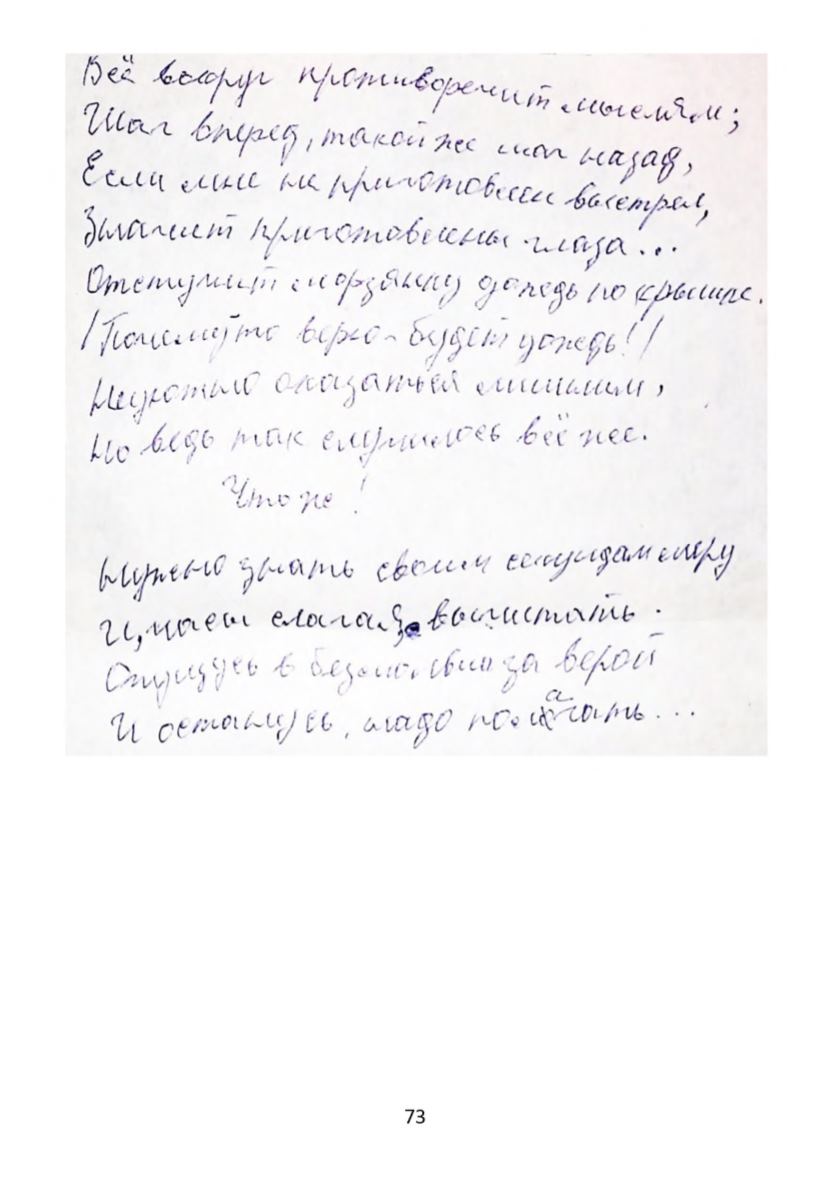 Всё вокруг противоречит мыслям;
Шаг вперед, такой же шаг назад,
Если мне не приготовлен выстрел,
Значит приготовлены глаза...
Отстучит морзянку дождь по крыше.
/Почему-то верю - будет дождь!/
Неуютно оказаться лишним,
Но ведь так случилось всё же.
Что же!
Нужно знать своим секундам меру
И, часы слагая, вычитать.
Спущусь в безмолвии за верой
И останусь, надо
73